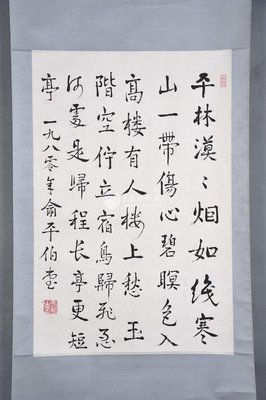 平林漠〻烟如织寒
山一带傷心碧暝色入
高楼有人楼上愁玉
階空佇立宿鳥歸飛急
何處是歸程长亭更短
亭 一九八零年俞平伯书